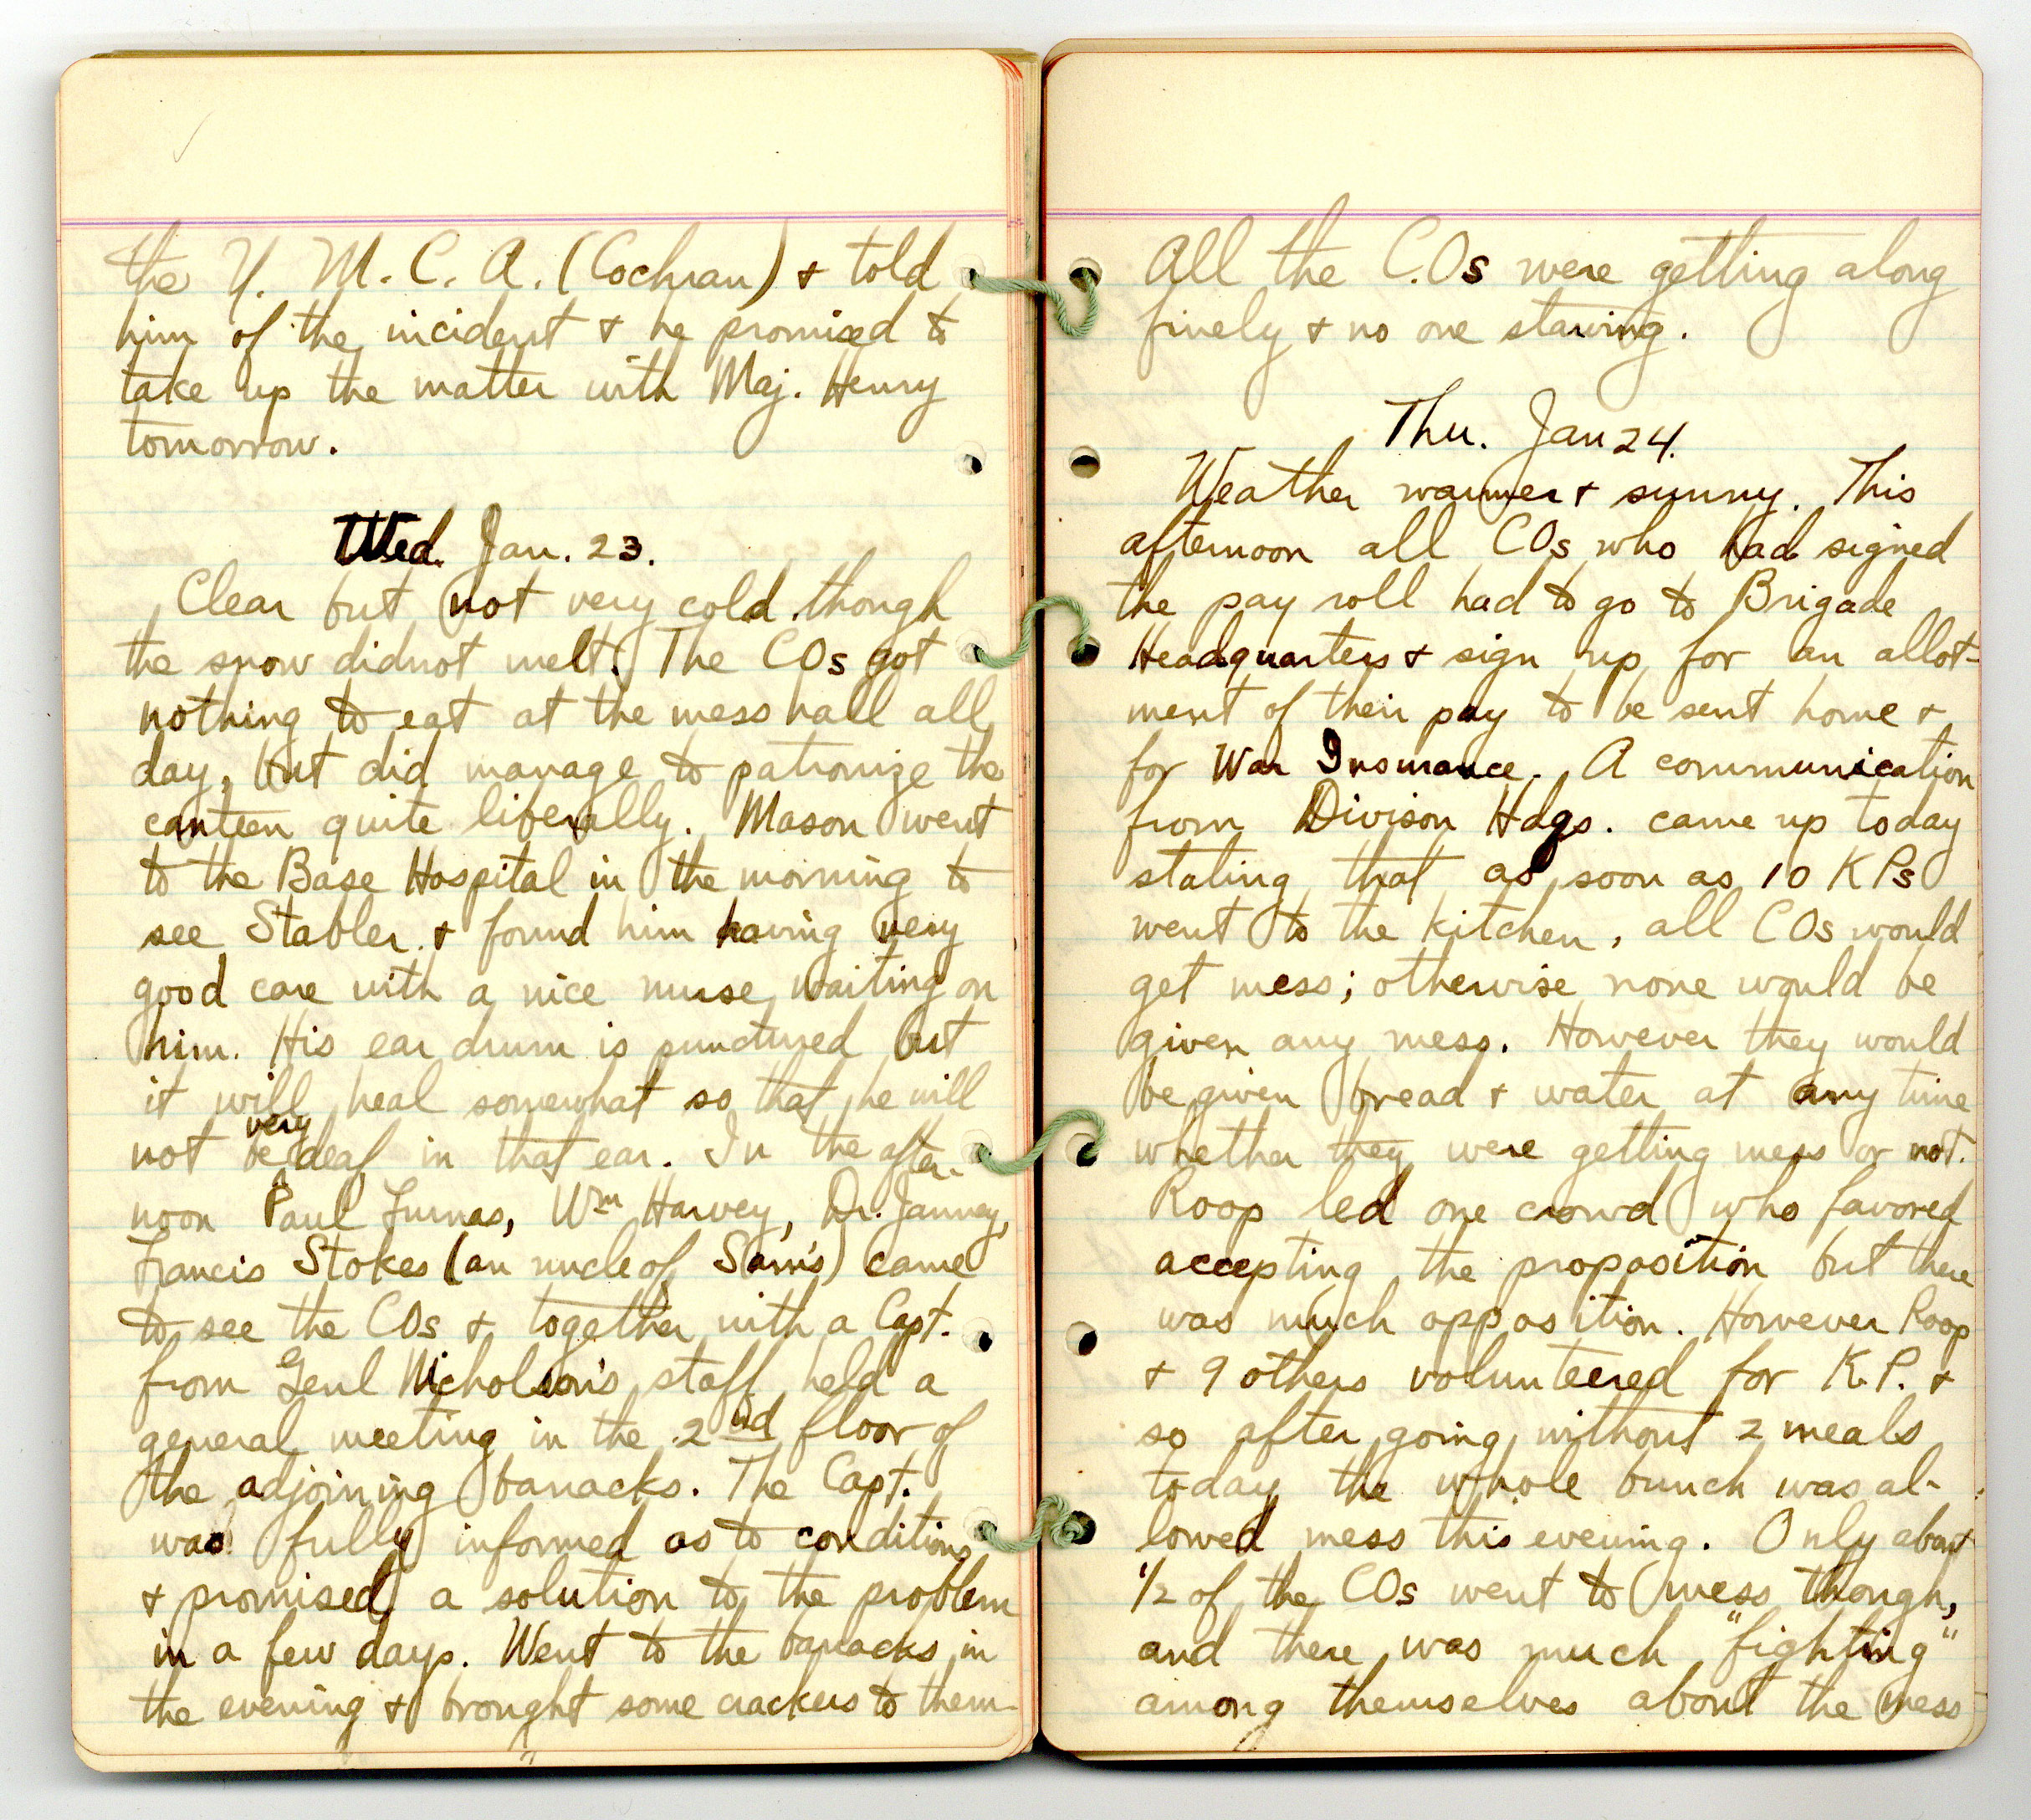 the Y. M. C. A. (Cochran) + told
him of the incident + he promised to
take up the matter with Maj. Henry
tomorrow.
Wed. Jan. 23.
Clear but not very cold though
the snow didnot melt. The COs got
nothing to eat at the mess hall all
day, but did manage to patronize the
canteen quite liberally. Mason went
to the Base Hospital in the morning to
see Stabler + found him having very
good care with a nice nurse waiting on
him. His ear drum is punctured but
it will heal somewhat so that he will
very
not be deaf in that ear. In the after-
noon Paul Furnas, Wm Harvey, Dr. Janney,
Francis Stokes (an uncle of Sam's) came
to see the COs + together with a Capt.
from Genl Nicholson's staff held a
general meeting in the 2nd floor of
the adjoining barracks. The Capt.
was fully informed as to conditions
+ promised a solution to the problem
in a few days. Went to the barracks in
the evening + brought some crackers to them.
All the C.Os were getting along
finely + no one starving.
Thu. Jan 24.
Weather warmer + sunny. This
afternoon all COs who had signed
the pay roll had to go to Brigade
Headquarters + sign up for an allot-
ment of their pay to be sent home +
for War Insurance. A communication
from Divison Hdqs. came up today
stating that as soon as 10 KPs
went to the kitchen, all COs would
get mess; otherwise none would be
given any mess. However they would
be given bread + water at any time
whether they were getting mess or not.
Roop led one crowd who favored
accepting the proposition but there
was much opposition. However Roop
+ 9 others volunteered for K.P. +
so after going without 2 meals
today the whole bunch was al-
lowed mess this evening. Only about
1/2 of the COs went to mess though,
and there was much "fighting"
among themselves about the mess